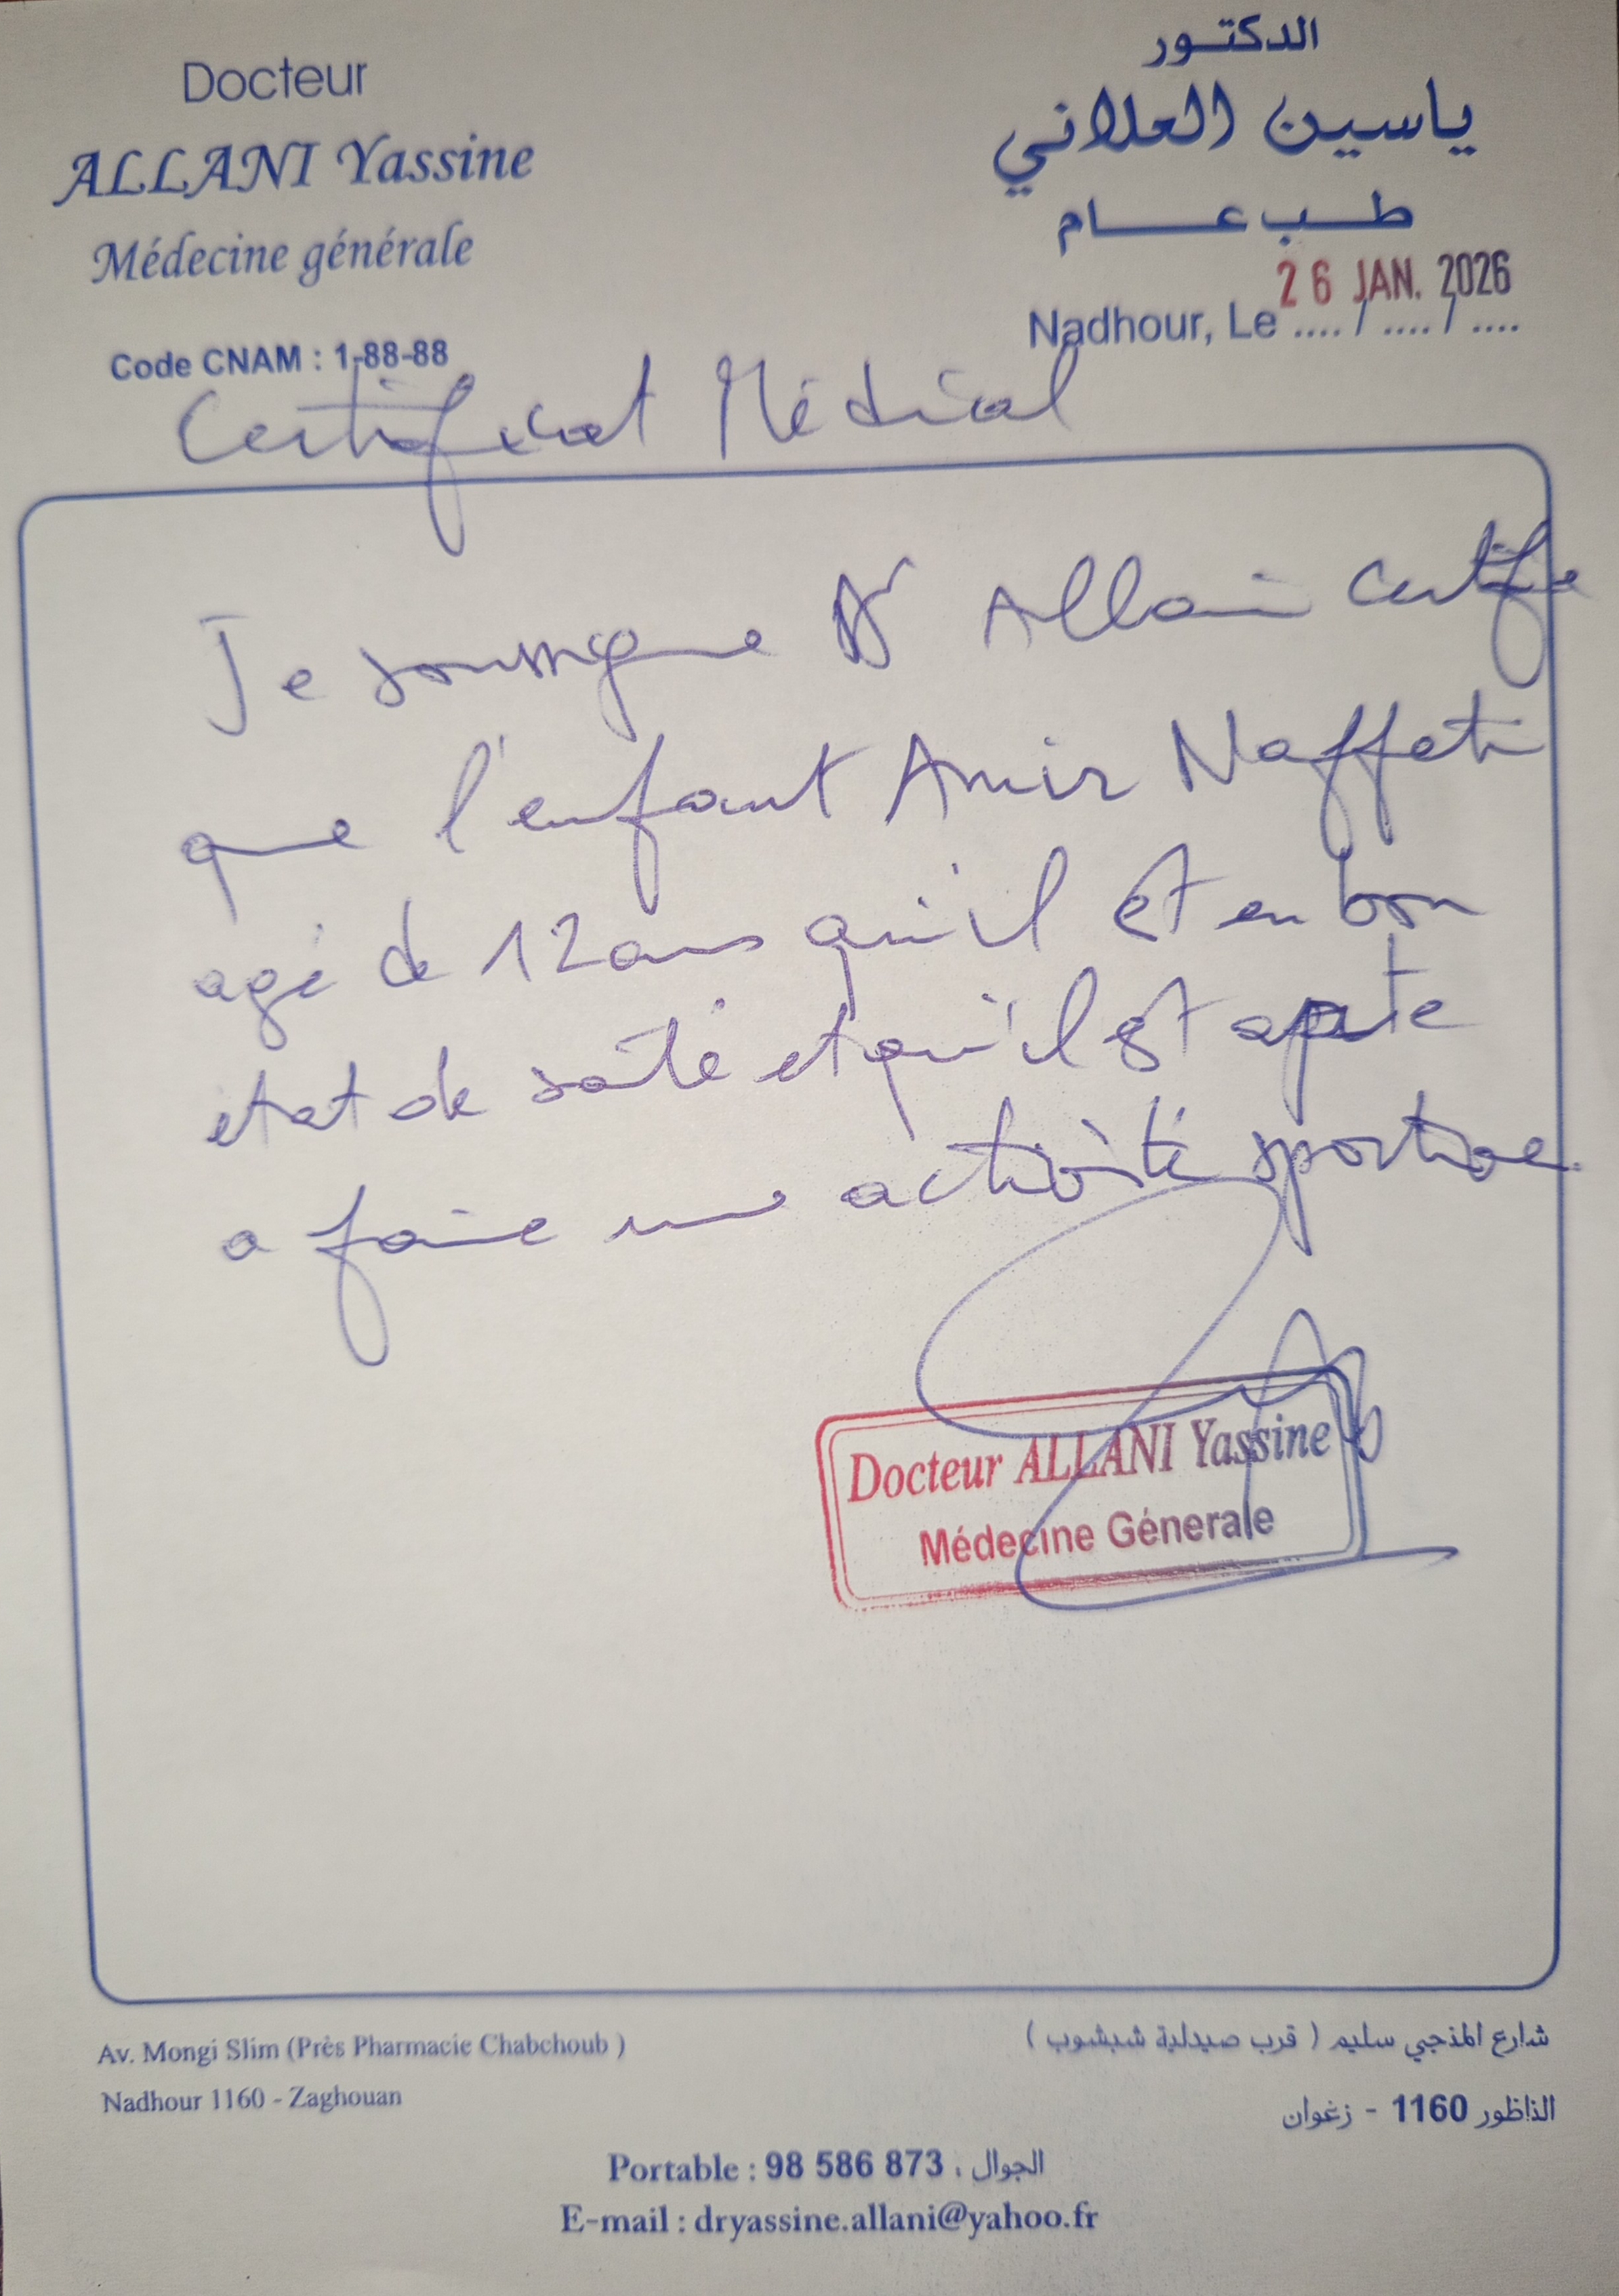 Docteur
ALLANI Yassine
Médecine générale
Code CNAM : 1-88-88
الدكتور
ياسين العلاني
طب عام
26 JAN. 2026
Nadhour, Le .... / .... / ....
Certificat Médical
Je soussigne Dr Allani certifie
que l'enfant Amir Naffeti
agé de 12 ans qu'il est en bon
etat de santé et qu'il est apte
a faire une activité sportive.
Docteur ALLANI Yassine
Médecine Génerale
Av. Mongi Slim (Près Pharmacie Chabchoub )
Nadhour 1160 - Zaghouan
شارع المنجي سليم ( قرب صيدلية شبشوب )
الناظور 1160 - زغوان
Portable : 98 586 873 . الجوال
E-mail : dryassine.allani@yahoo.fr